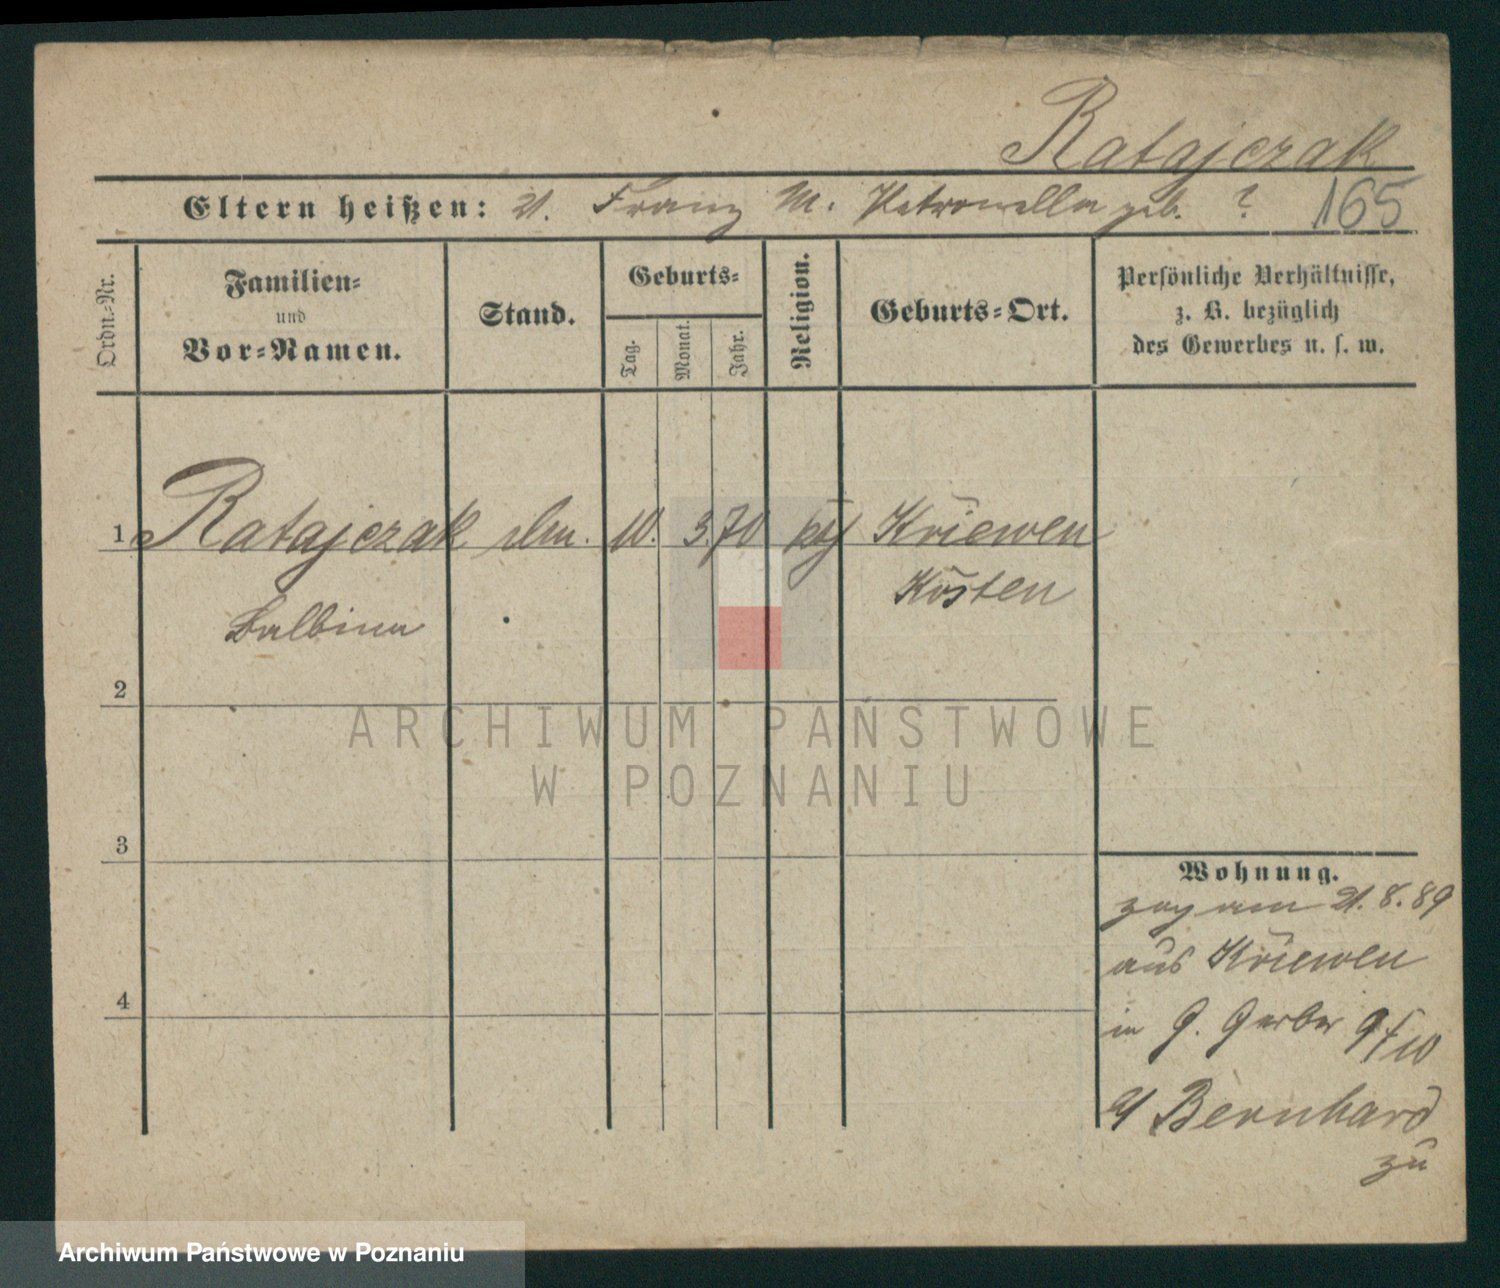 Ratajczak
Eltern heißen: V. Franz M. Petronella geb. ? 165
Ordn.-Nr.
Familien-
und
Vor-Namen.
Stand.
Geburts-
Tag.
Monat.
Jahr.
Religion.
Geburts-Ort.
Persönliche Verhältnisse,
z. B. bezüglich
des Gewerbes u. s. w.
1 Ratajczak 10. 3. 70 Kriewen
Balbina Kosten
2
3
4
Wohnung.
zog am 21. 8. 89
aus Kriewen
in G. Gerber 9/10
Bernhard
zu
ARCHIWUM PAŃSTWOWE
W POZNANIU
Archiwum Państwowe w Poznaniu